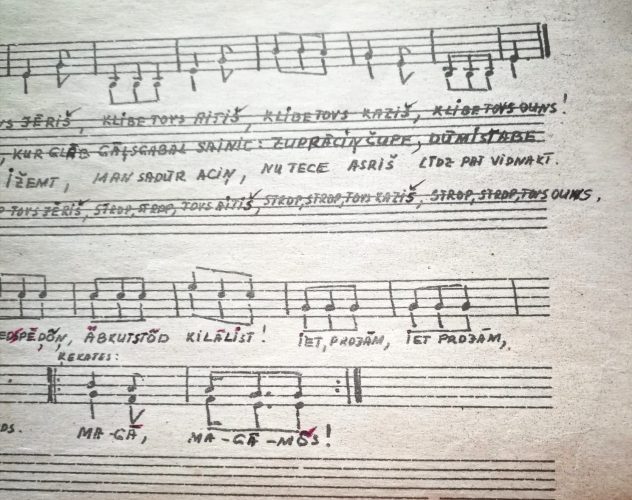 TOVS JĒRIŠ, KLIBE TOVS AITIŠ, KLIBE TOVS KAZIŠ, KLIBE TOVS OUNS!
, KUR GLĀB GĀĻSGABAL SAINIC: ZUPRĀCIŅ ČUPE, DŪMISTABE
IŽEMT, MAN SADŪR ACIŅ, NU TECE ASRIŠ LĪDZ PAT VIDNAKT.
TOVS JĒRIŠ, STROP, STROP, TOVS AITIŠ, STROP, STROP, TOVS KAZIŠ, STROP, STROP, TOVS OUNS,
ĀBKUTSTÕD KILĀLIST! IET, PROJĀM, IET PROJĀM,
ĶEKATES:
DS. MA-GĀ, MA-GĀ-MÕS!